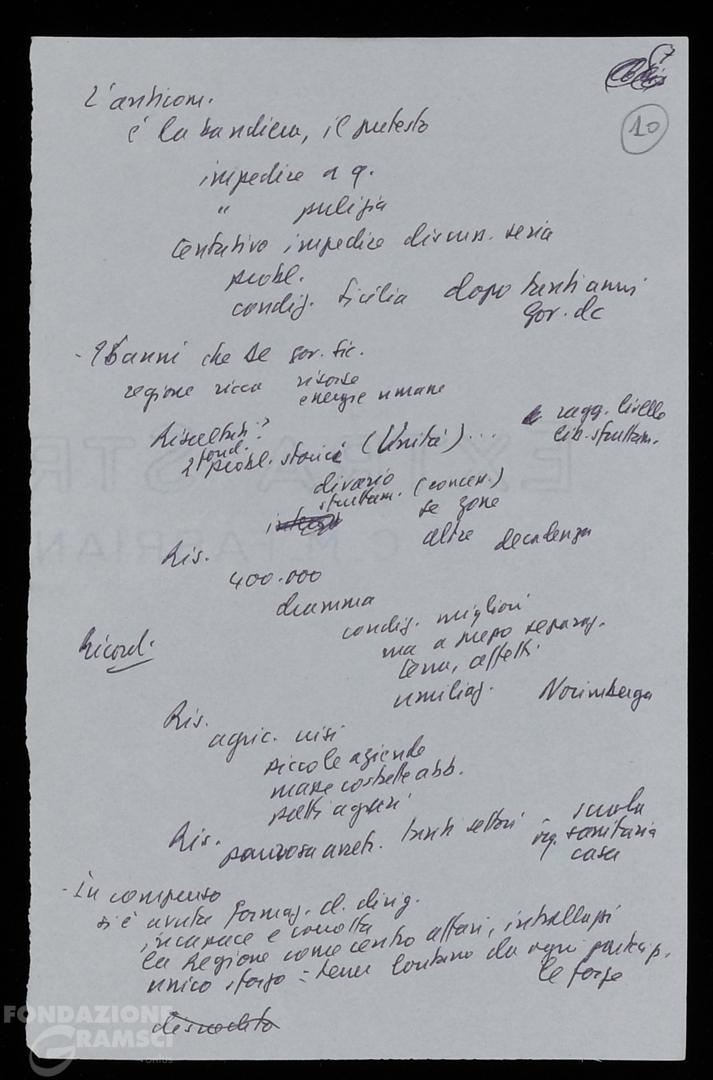 7
10
L'anticom.
è la bandiera, il pretesto
impedire a q.
" pulizia
tentativo impedire discuss. seria
probl.
condiz. Sicilia dopo tanti anni
gov. dc
- anni che DC gov. Sic.
regione ricca risorse
energie umane
Risultati?
ragg. livello
2 fond.
probl. storici (Unità)...
lib. sfruttam.
divario
sfruttam. (concen.)
se zone
altre decadenza
Ris.
400.000
dramma
condiz. migliori
Ricord.
ma a prezzo separaz.
terra, affetti
umiliaz. Norimberga
Ris.
agric. crisi
piccole aziende
masse costrette abb.
patti agrari
Ris.
paurosa arret. tanti settori scuola
sanitaria
casa
- In compenso
si è avuta formaz. cl. dirig.
incapace e corrotta
la Regione come centro affari, intrallazzi
unico sforzo = tener lontano da ogni partecip.
le forze
FONDAZIONE
GRAMSCI